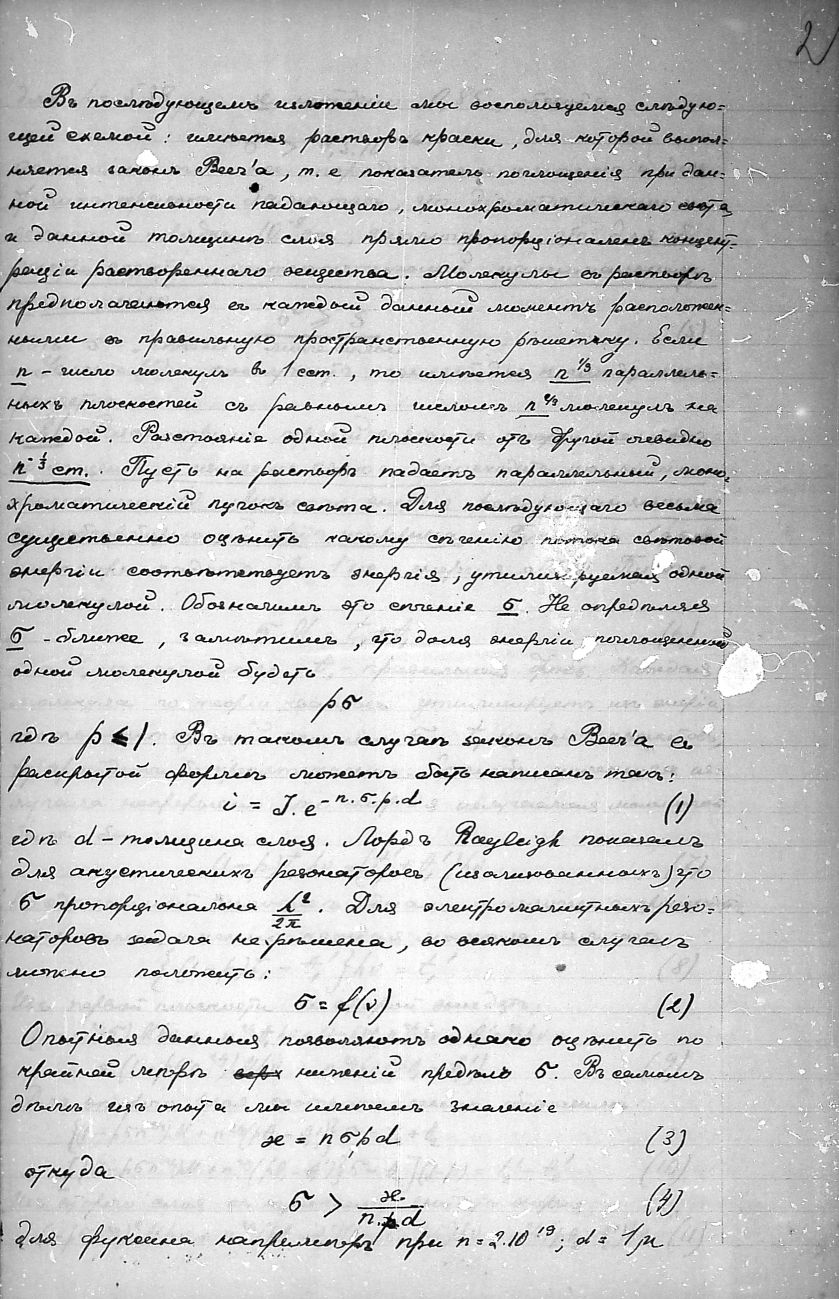 2
Въ послѣдующемъ изложеніи мы воспользуемся слѣдую-
щей схемой: имѣется растворъ краски, для которой выпол-
няется законъ Beer'а, т. е показатель поглощенія при дан-
ной интенсивности падающаго, монохроматическаго свѣта
и данной толщинѣ слоя прямо пропорціоналенъ концент-
раціи раствореннаго вещества. Молекулы въ растворѣ
предполагаются въ каждый данный моментъ расположен-
ными въ правильную пространственную рѣшетку. Если
n - число молекулъ в 1 cст., то имѣется n^1/3 параллель-
ныхъ плоскостей съ равнымъ числомъ n^2/3 молекулъ на
каждой. Разстояніе одной плоскости отъ другой очевидно
n^-1/3 ст. Пусть на растворъ падаетъ параллельный, моно-
хроматическій пучокъ свѣта. Для послѣдующаго весьма
существенно оцѣнить какому сѣченію потока свѣтовой
энергіи соотвѣтствуетъ энергія, утилизируемая одной
молекулой. Обозначимъ это сѣченіе σ. Не опредѣляя
σ - ближе, замѣтимъ, что доля энергіи поглощенной
одной молекулой будетъ
pσ
гдѣ p ≤ 1. Въ такомъ случаѣ законъ Beer'а въ
раскрытой формѣ можетъ быть написанъ такъ:
i = J.e^-n.σ.p.d (1)
гдѣ d - толщина слоя. Лордъ Rayleigh показалъ
для акустическихъ резонаторовъ (изолированныхъ) что
σ пропорціональна λ²/2π. Для электромагнитныхъ резо-
наторовъ задача не рѣшена, во всякомъ случаѣ
можно положить:
σ = f(ν) (2)
Опытныя данныя позволяютъ однако оцѣнить по
крайней мѣрѣ нижній предѣлъ σ. Въ самомъ
дѣлѣ изъ опыта мы имѣемъ значеніе
ϰ = nσpd (3)
откуда
σ > ϰ/n.d (4)
для фуксина напримѣръ при n = 2.10^19; d = 1μ